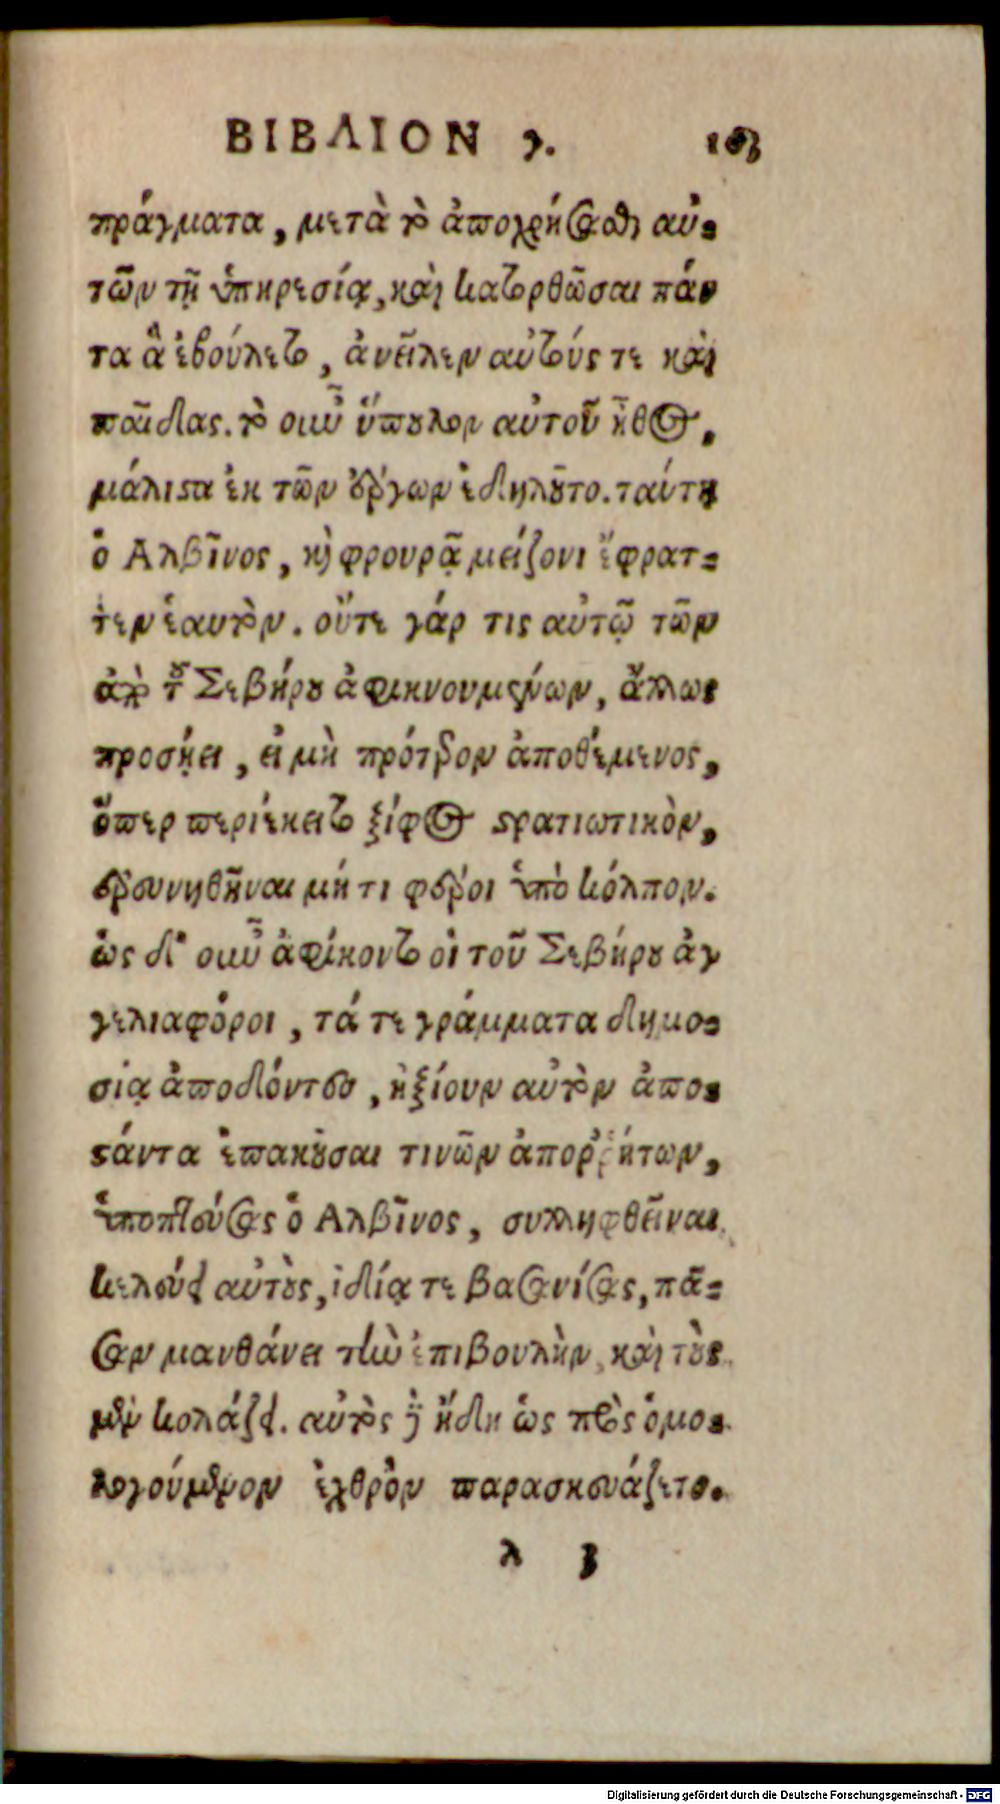 ΒΙΒΛΙΟΝ γ. 163
πράγματα, μετὰ τὸ ἀποχρήσασθαι αὐ-
τῶν τῇ ὑπηρεσίᾳ, καὶ κατορθῶσαι πάν
τα ἃ ἐβούλετο, ἀνεῖλεν αὐτούς τε καὶ
παῖδας. τὸ οὖν ὕπουλον αὐτοῦ ἦθος,
μάλιστα ἐκ τῶν ἔργων ἐδηλοῦτο. ταύτῃ
ὁ Αλβῖνος, καὶ φρουρᾷ μείζονι ἔφρατ-
τεν ἑαυτὸν. οὔτε γάρ τις αὐτῷ τῶν
ἀπὸ τοῦ Σεβήρου ἀφικνουμένων, ἄλλως
προσῄει, εἰ μὴ πρότερον ἀποθέμενος,
ὅπερ περιέκειτο ξίφος στρατιωτικὸν,
ἐρευνηθῆναι μή τι φέροι ὑπὸ κόλπον.
ὡς δ' οὖν ἀφίκοντο οἱ τοῦ Σεβήρου ἀγ
γελιαφόροι, τά τε γράμματα δημο-
σίᾳ ἀποδόντες, ἠξίουν αὐτὸν ἀπο-
στάντα ἐπακοῦσαι τινῶν ἀποῤῥήτων,
ὑποπτεύσας ὁ Αλβῖνος, συλληφθῆναι
κελεύει αὐτοὺς, ἰδίᾳ τε βασανίσας, πᾶ-
σαν μανθάνει τὴν ἐπιβουλὴν, καὶ τοὺς
μὲν κολάζει. αὐτὸς δὲ ἤδη ὡς πρὸς ὁμο-
λογούμενον ἐχθρὸν παρασκευάζετο.
λ 3
Digitalisierung gefördert durch die Deutsche Forschungsgemeinschaft - DFG